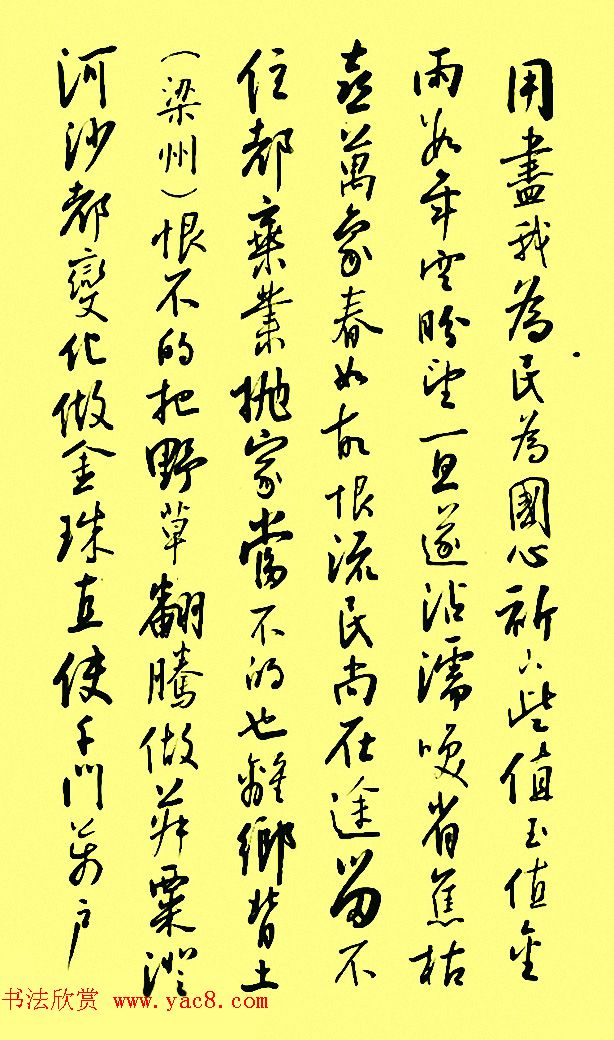 用盡我為民為國心祈下些值玉值金
雨數年空盼望一旦遂沾濡喚省焦枯
喜萬象春如故恨流民尚在途留不
住都棄業抛家當不的也離鄉背土
（梁州）恨不的把野草翻騰做菽粟澄
河沙都變化做金珠直使千門萬户
书法欣赏 www.yac8.com